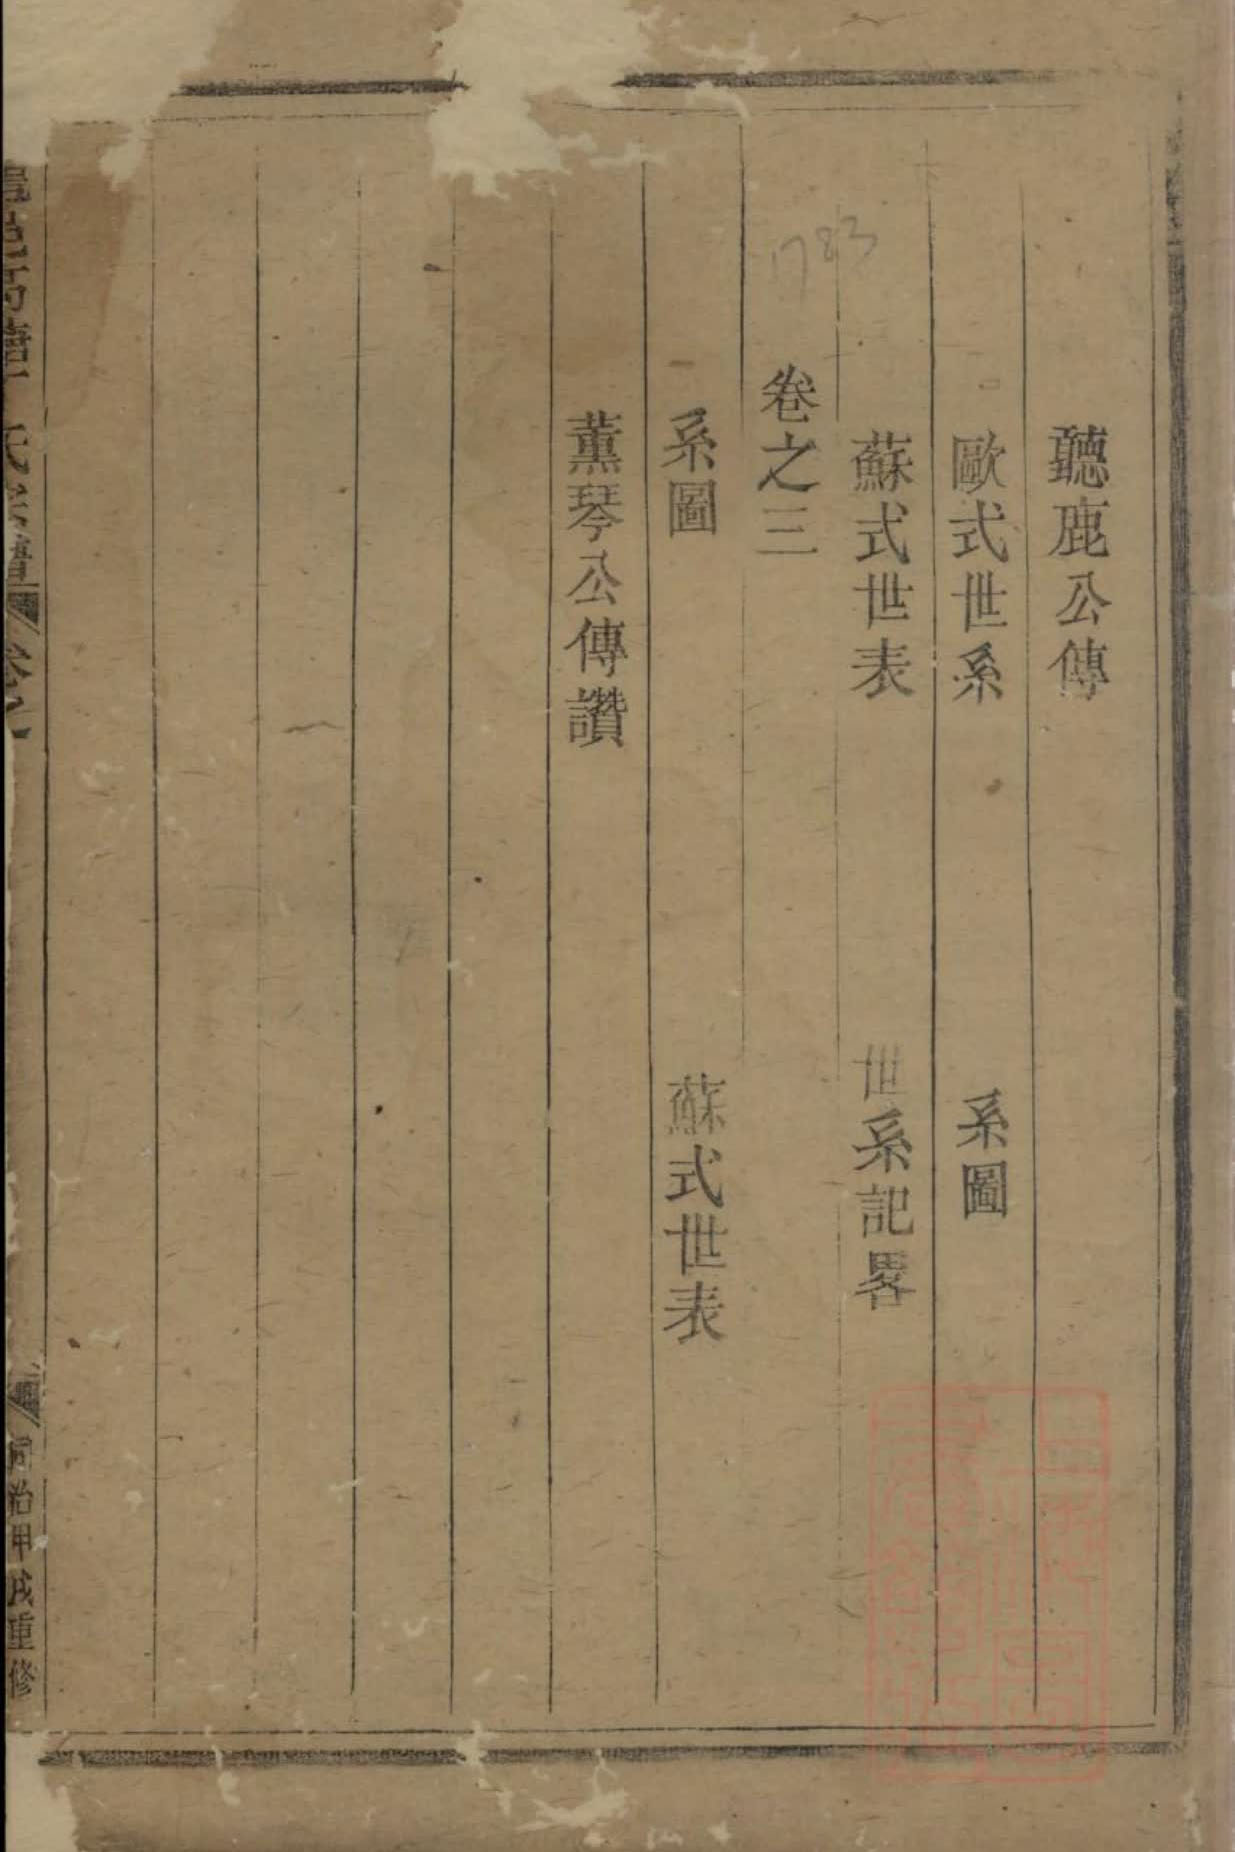 聽鹿公傳
歐式世系　系圖
蘇式世表　世系記畧
1783
卷之三
系圖　蘇式世表
薰琴公傳讚
氏宗譜　卷之一　同治甲戌重修